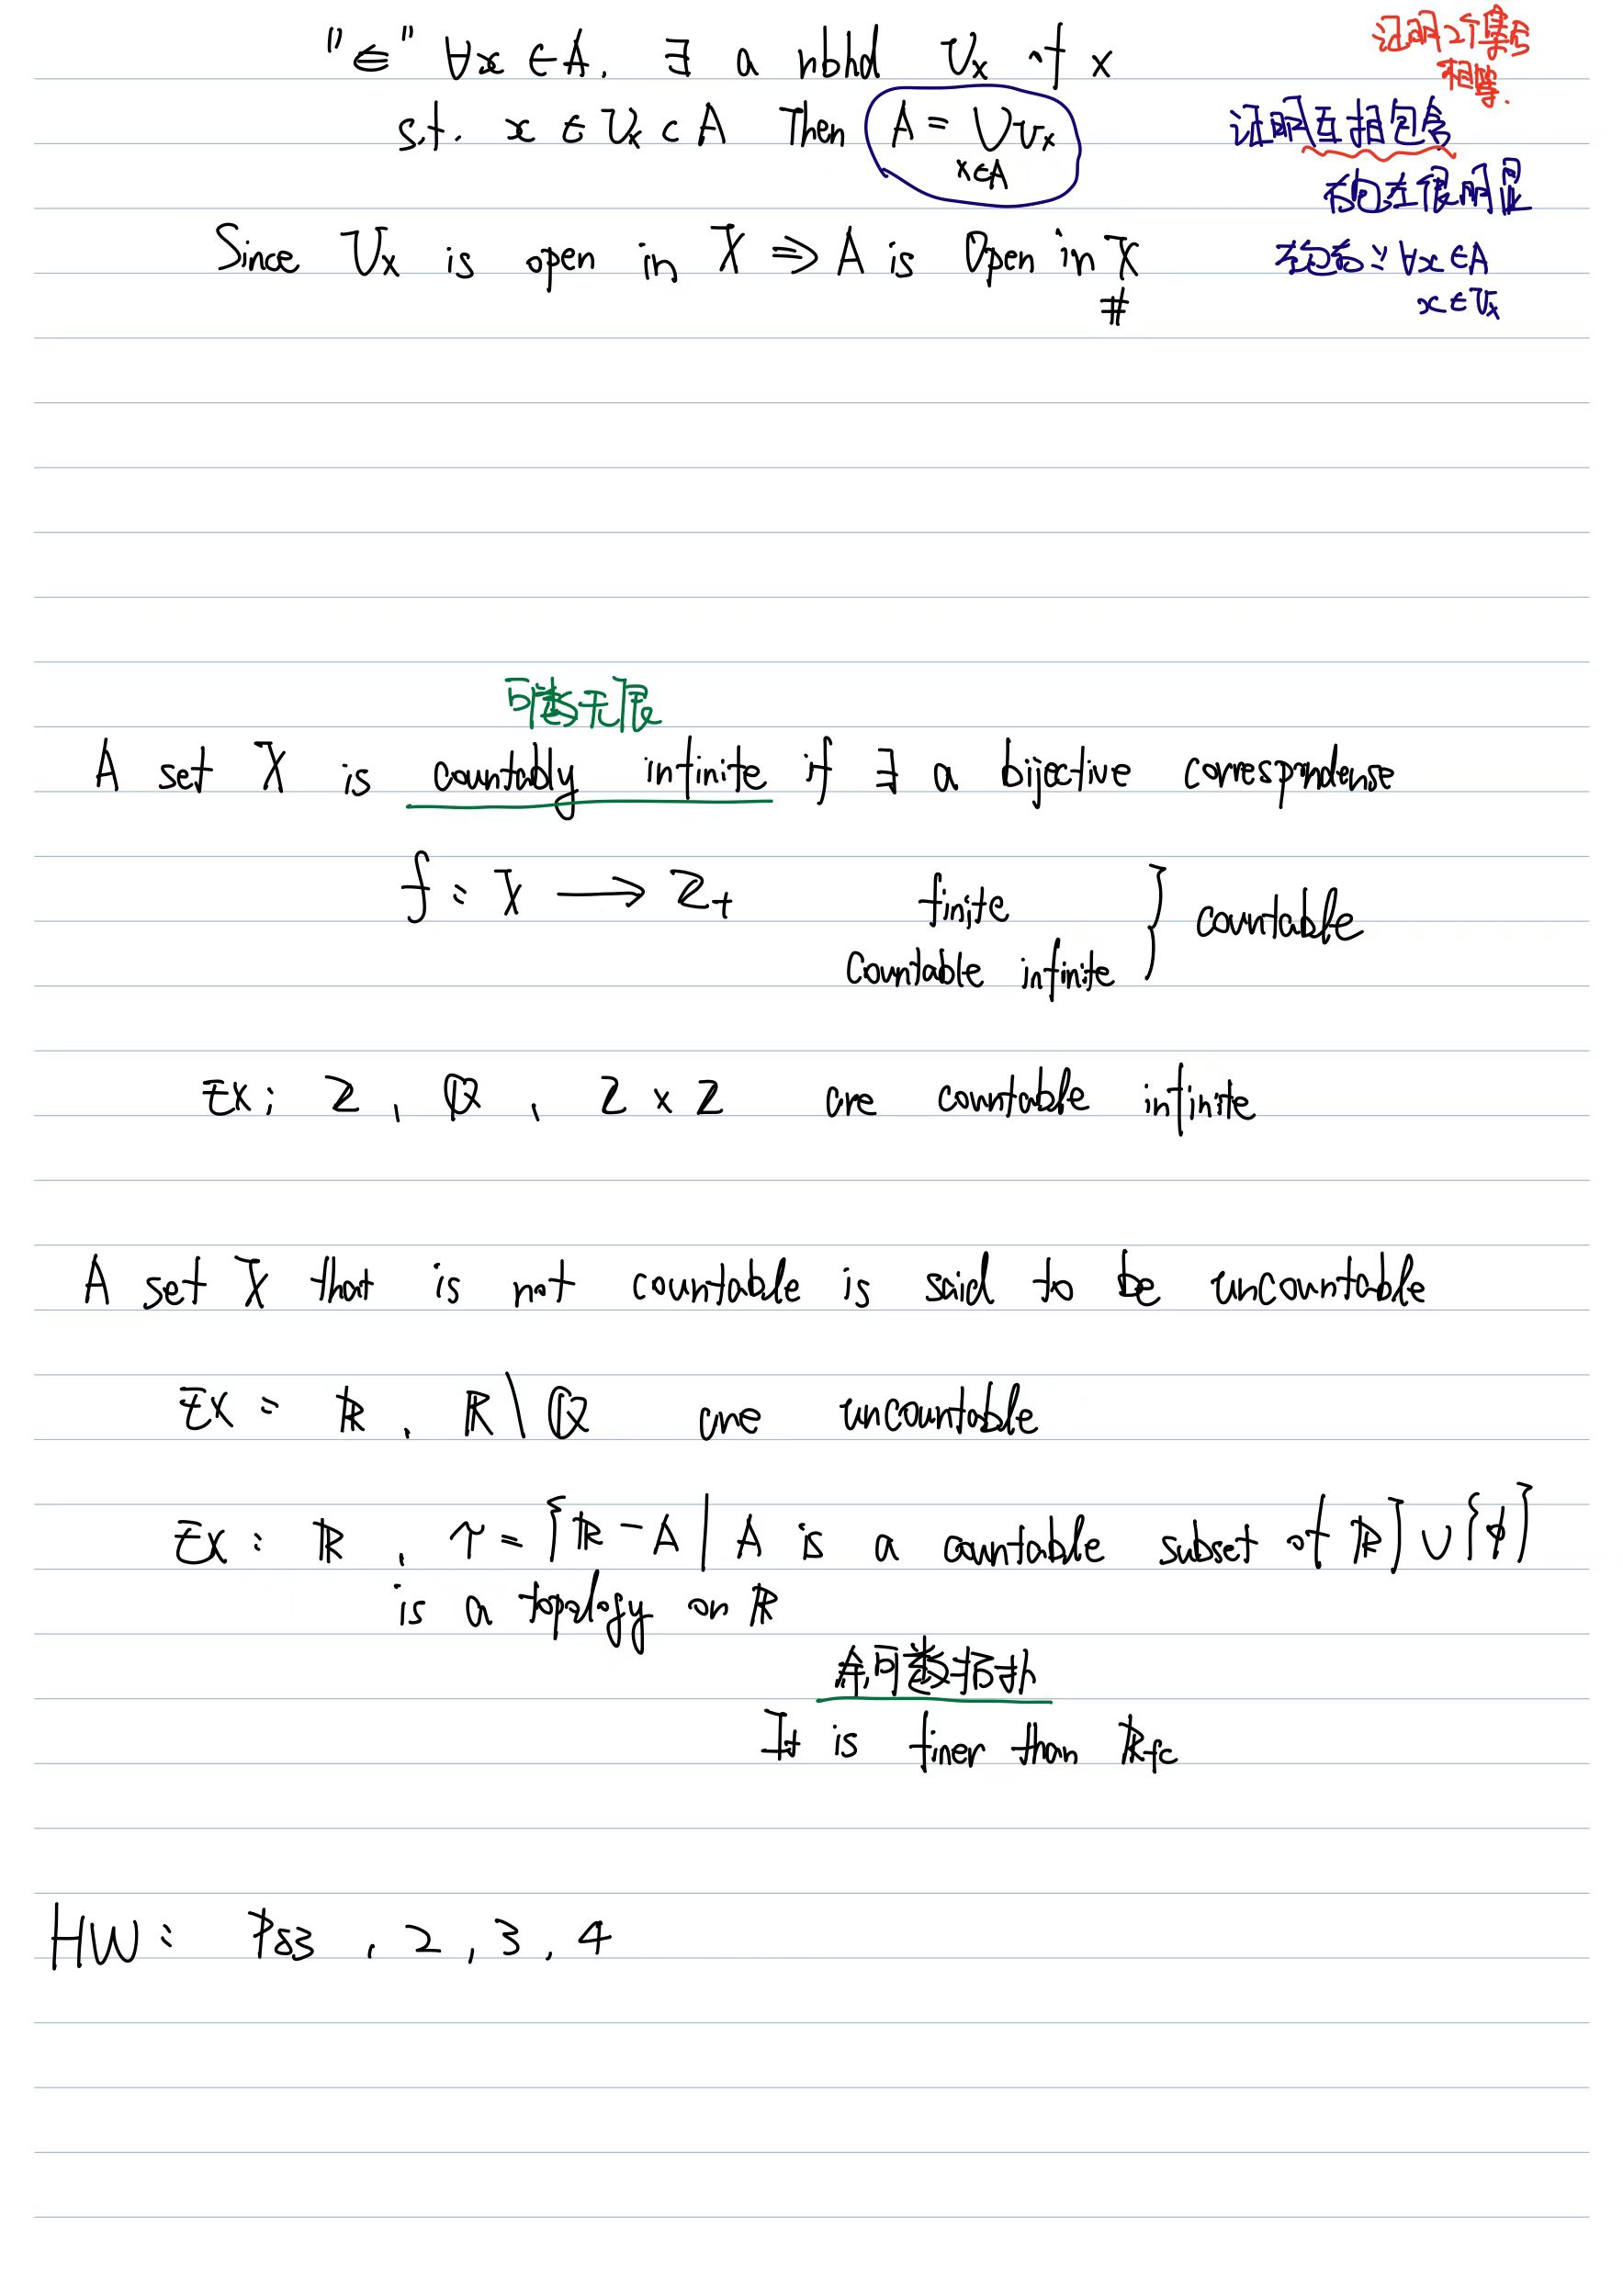 "⇐" ∀x ∈ A, ∃ a nbhd Uₓ of x
证明2个集合
相等.
s.t. x ∈ Uₓ ⊂ A Then A = ∪Uₓ
x∈A
证明互相包含
右包左很明显
Since Uₓ is open in X ⇒ A is Open in X
#
∵ ∀x ∈ A
x ∈ Uₓ
可数无限
A set X is countably infinite if ∃ a bijective correspondense
f : X ⟶ Z₊
finite
countable infinite } countable
Ex: Z , Q , Z × Z are countable infinite
A set X that is not countable is said to be uncountable
Ex: R , R \ Q are uncountable
Ex: R , τ = {R − A | A is a countable subset of R} ∪ {ϕ}
is a topology on R
余可数拓扑
It is finer than R_fc
HW: P83 , 2 , 3 , 4